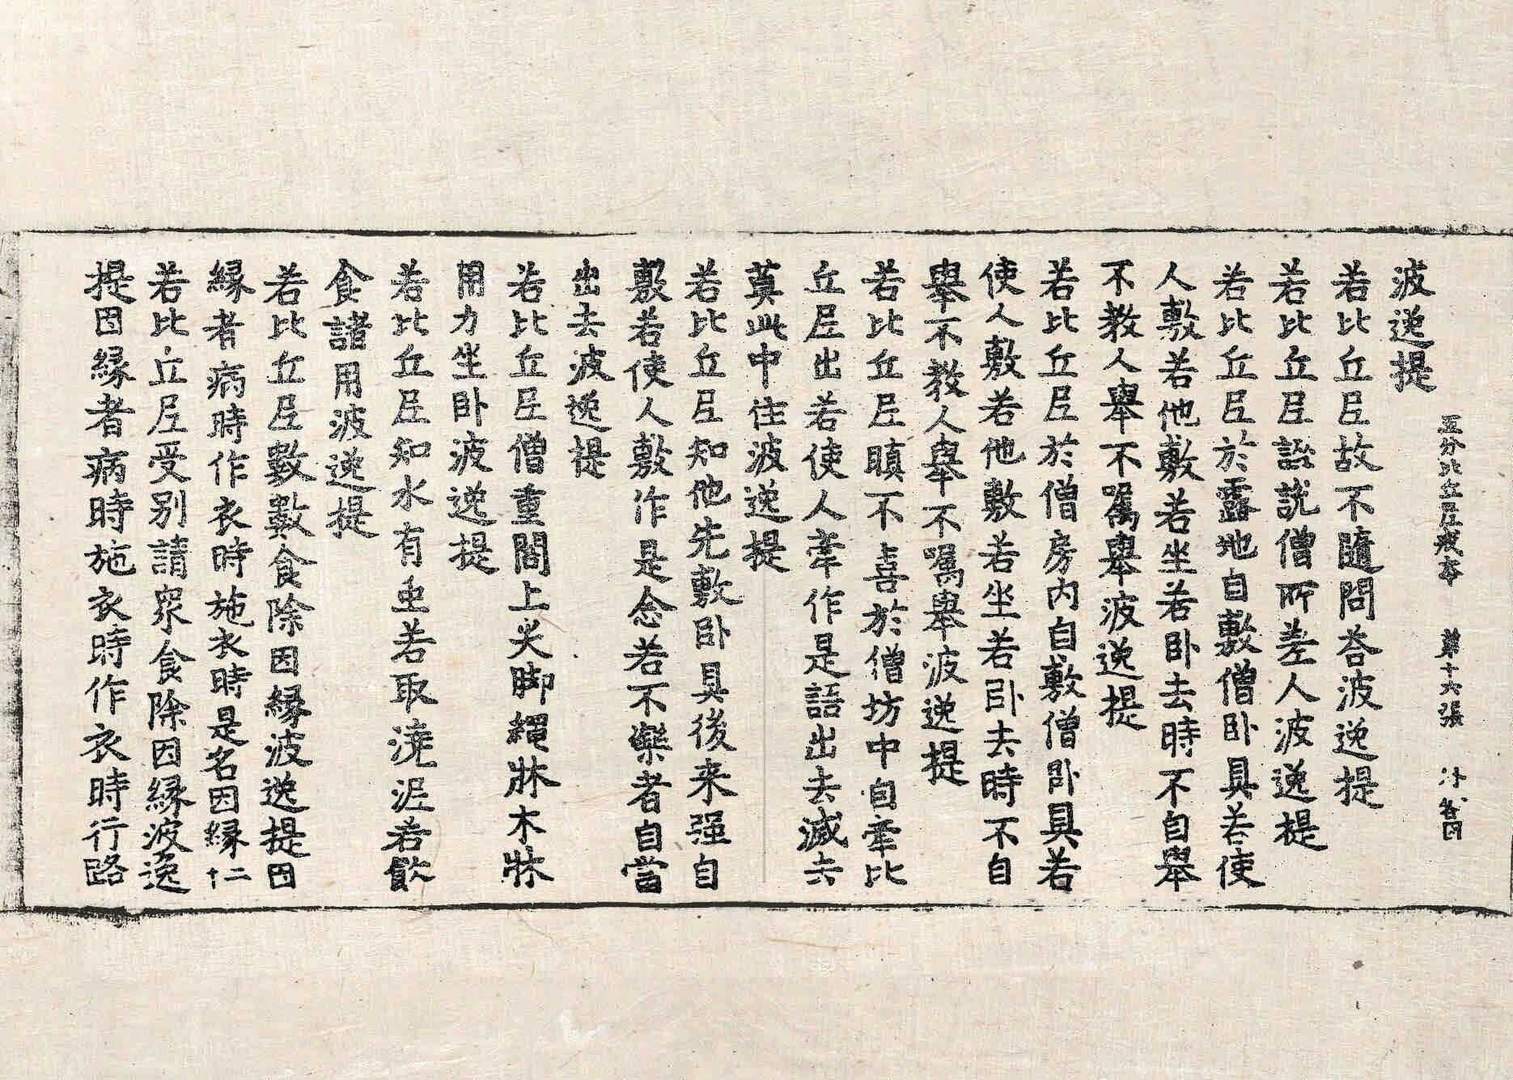 五分比丘尼戒本　第十六張
波逸提
若比丘尼故不隨問荅波逸提
若比丘尼誣說僧所差人波逸提
若比丘尼於露地自敷僧卧具若使
人敷若他敷若坐若卧去時不自舉
不教人舉不囑舉波逸提
若比丘尼於僧房内自敷僧卧具若
使人敷若他敷若坐若卧去時不自
舉不教人舉不囑舉波逸提
若比丘尼瞋不喜於僧坊中自牽比
丘尼出若使人牽作是語出去滅去
莫此中住波逸提
若比丘尼知他先敷卧具後来强自
敷若使人敷作是念若不樂者自當
出去波逸提
若比丘尼僧重閣上尖脚繩牀木牀
用力坐卧波逸提
若比丘尼知水有虫若取澆泥若飲
食諸用波逸提
若比丘尼數數食除因緣波逸提因
緣者病時作衣時施衣時是名因緣二十
若比丘尼受别請衆食除因緣波逸
提因緣者病時施衣時作衣時行路